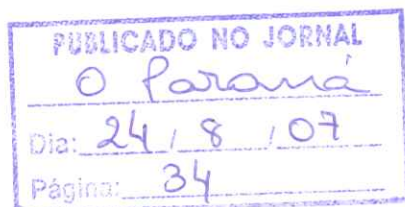 PUBLICADO NO JORNAL
O Paraná
Dia: 24 / 8 / 07
Página: 34